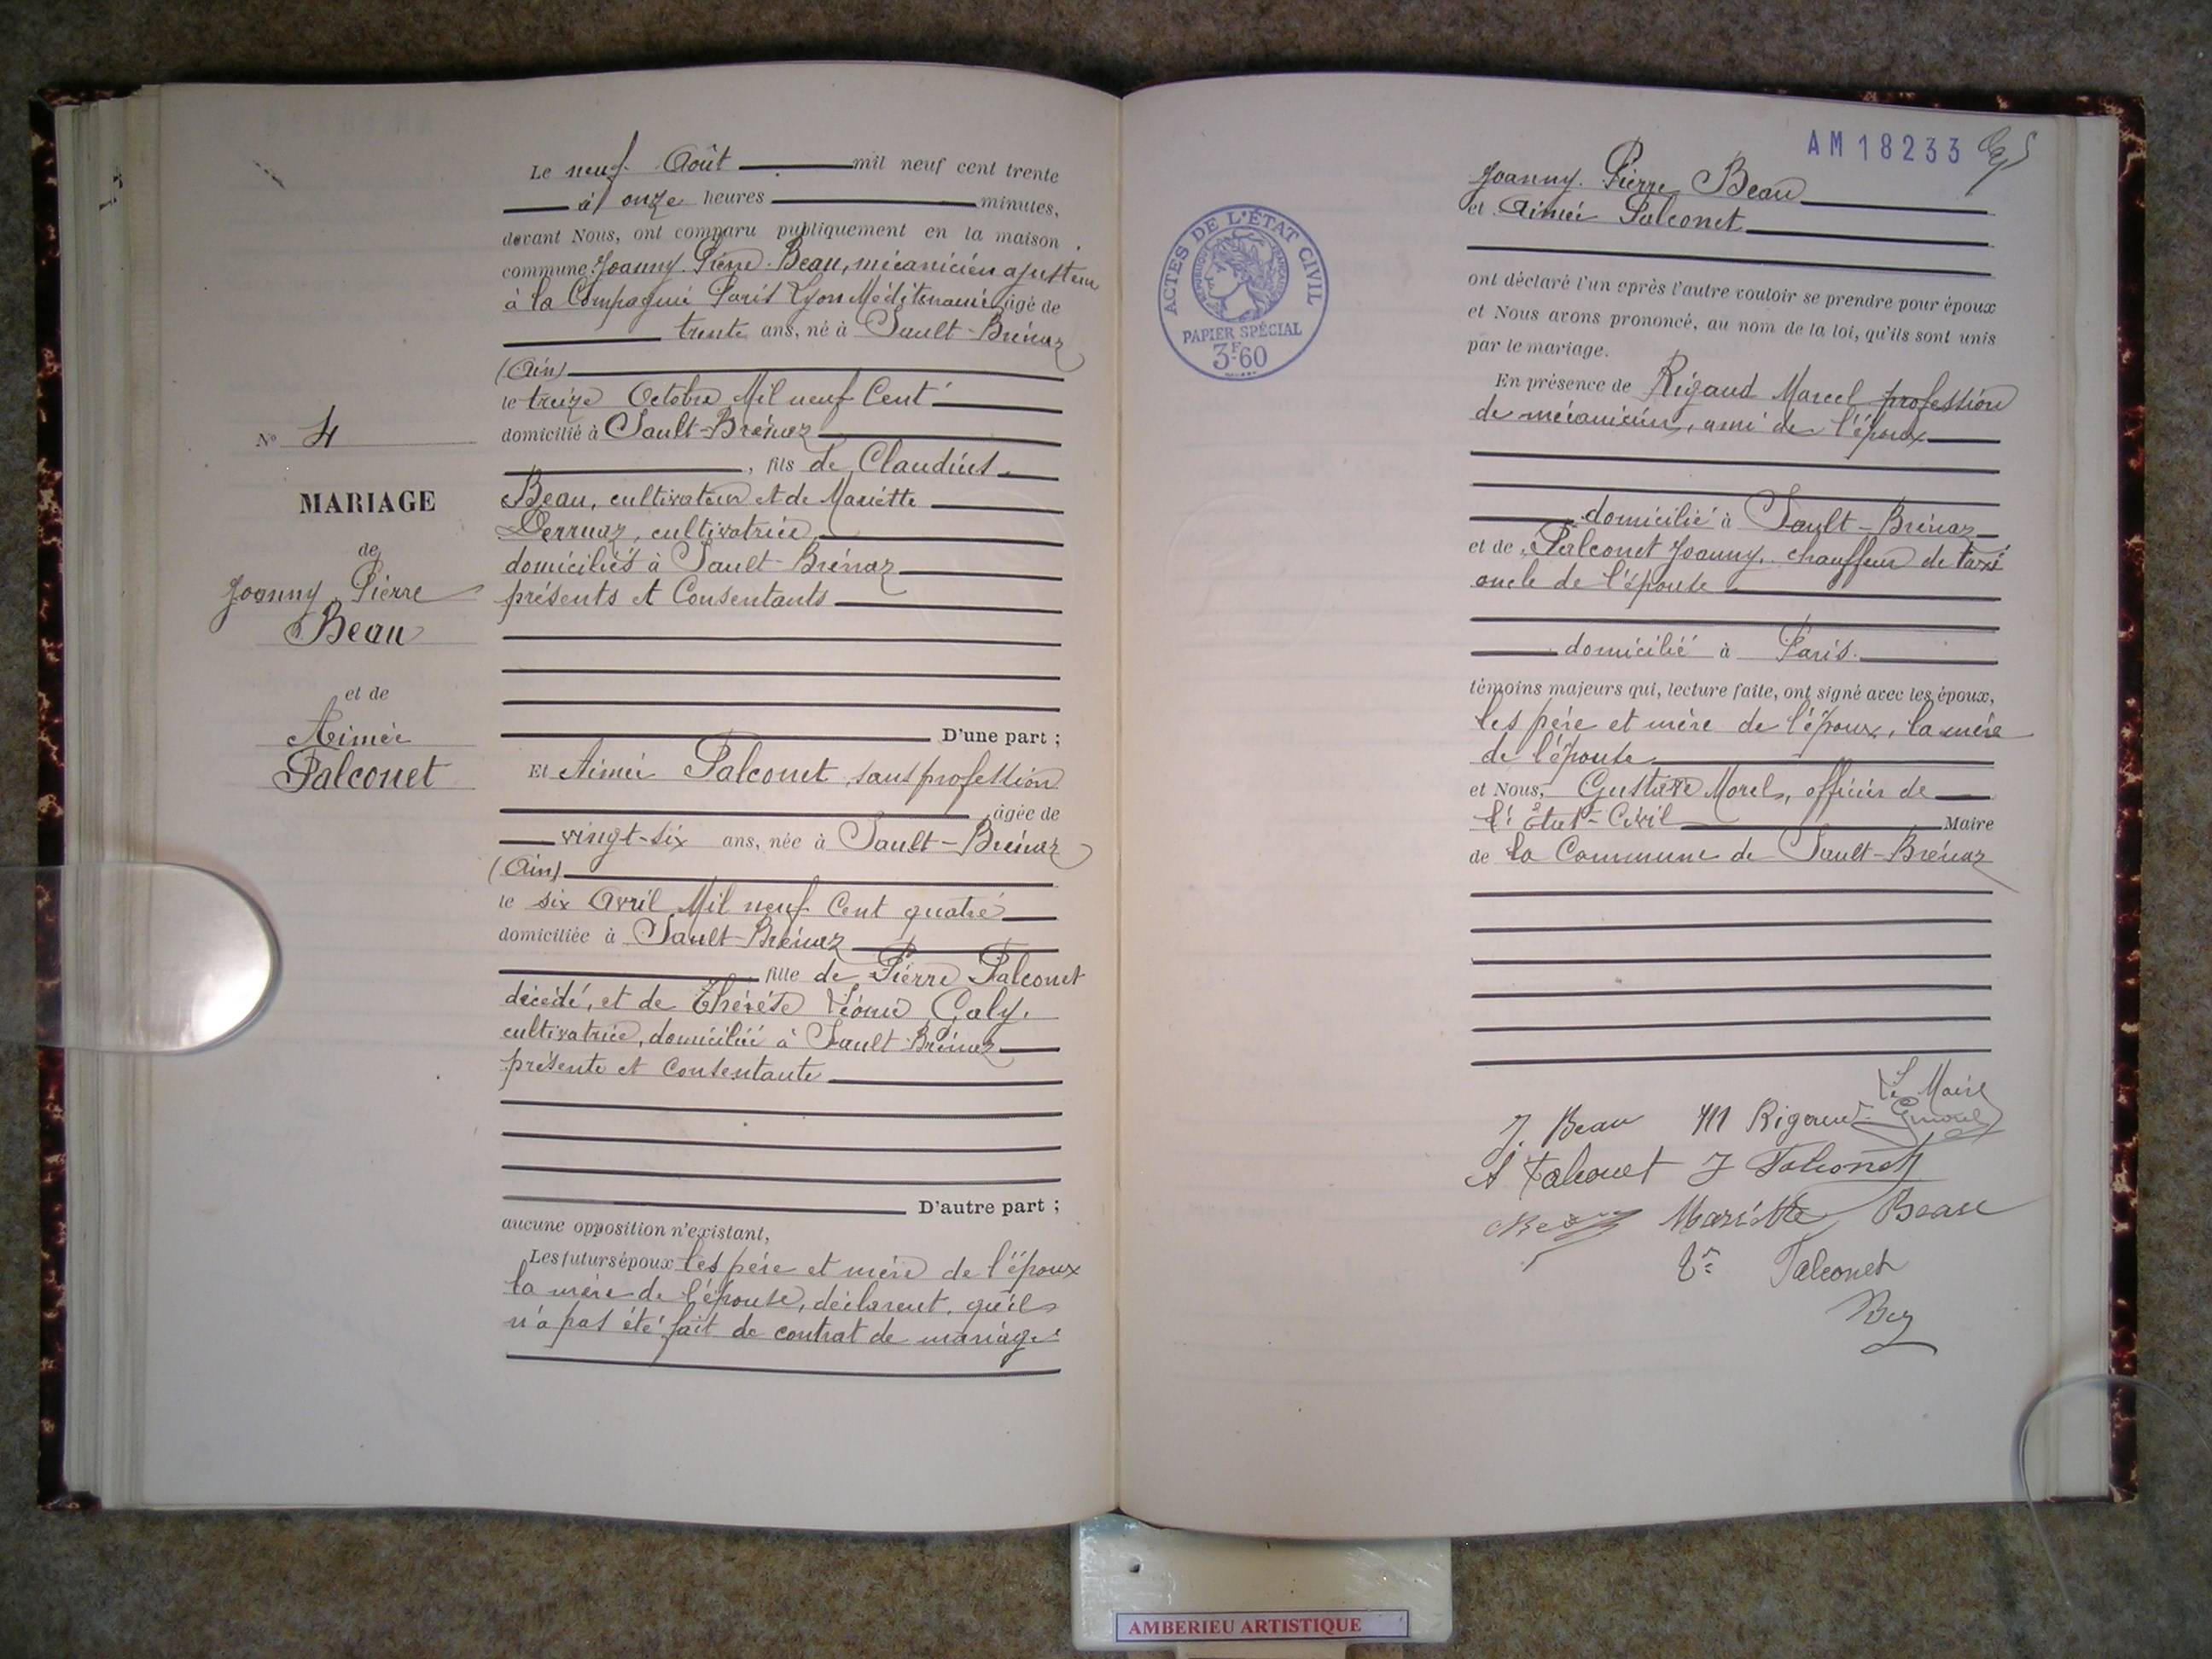 Le neuf Août mil neuf cent trente
à onze heures minutes,
devant Nous, ont comparu publiquement en la maison
commune Joanny Pierre Beau, mécanicien ajusteur
à la Compagnie Paris Lyon Méditerranée âgé de
trente ans, né à Sault-Brénaz
(Ain)
le treize Octobre Mil neuf Cent
domicilié à Sault-Brénaz
, fils de Claudius
Beau, cultivateur et de Mariette
Derruaz, cultivatrice,
domiciliés à Sault-Brénaz
présents et Consentants
D'une part ;
Et Aimée Falconet, sans profession
âgée de
vingt-six ans, née à Sault-Brénaz
(Ain)
le six Avril Mil neuf Cent quatre
domiciliée à Sault-Brénaz
fille de Pierre Falconet
décédé, et de Thérèse Léonie Caly,
cultivatrice, domiciliée à Sault-Brénaz
présente et Consentante
D'autre part ;
aucune opposition n'existant,
Les futurs époux les père et mère de l'époux
la mère de l'épouse, déclarent, qu'il
n'a pas été fait de contrat de mariage
N° 4
MARIAGE
de
Joanny Pierre
Beau
et de
Aimée
Falconet
AM 18233
Joanny Pierre Beau
et Aimée Falconet
ont déclaré l'un après l'autre vouloir se prendre pour époux
et Nous avons prononcé, au nom de la loi, qu'ils sont unis
par le mariage.
En présence de Rigaud Marcel profession
de mécanicien, ami de l'époux
domicilié à Sault-Brénaz
et de Falconet Joanny, chauffeur de taxi
oncle de l'épouse
domicilié à Paris.
témoins majeurs qui, lecture faite, ont signé avec les époux,
les père et mère de l'époux, la mère
de l'épouse
et Nous, Gustave Morel, officier de
l'État-Civil Maire
de la Commune de Sault-Brénaz
Le Maire
J. Beau M Rigaud GMorel
A Falconet J Falconet
Mariette Beau
Vve Falconet
ACTES DE L'ÉTAT CIVIL
RÉPUBLIQUE FRANÇAISE
PAPIER SPÉCIAL
3F60
AMBERIEU ARTISTIQUE